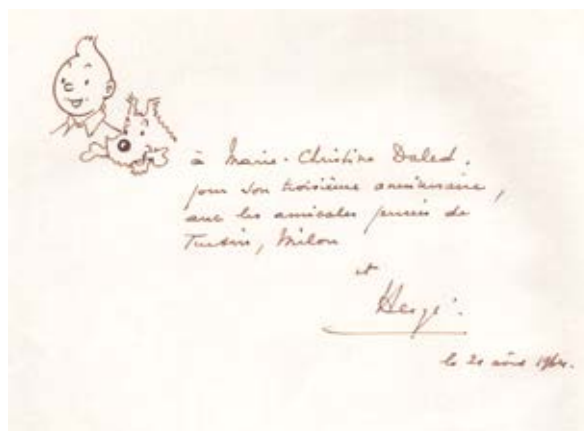 à Marie-Christine Daled,
pour son troisième anniversaire,
avec les amicales pensées de
Tintin, Milou
et
Hergé.
le 20 août 1964.